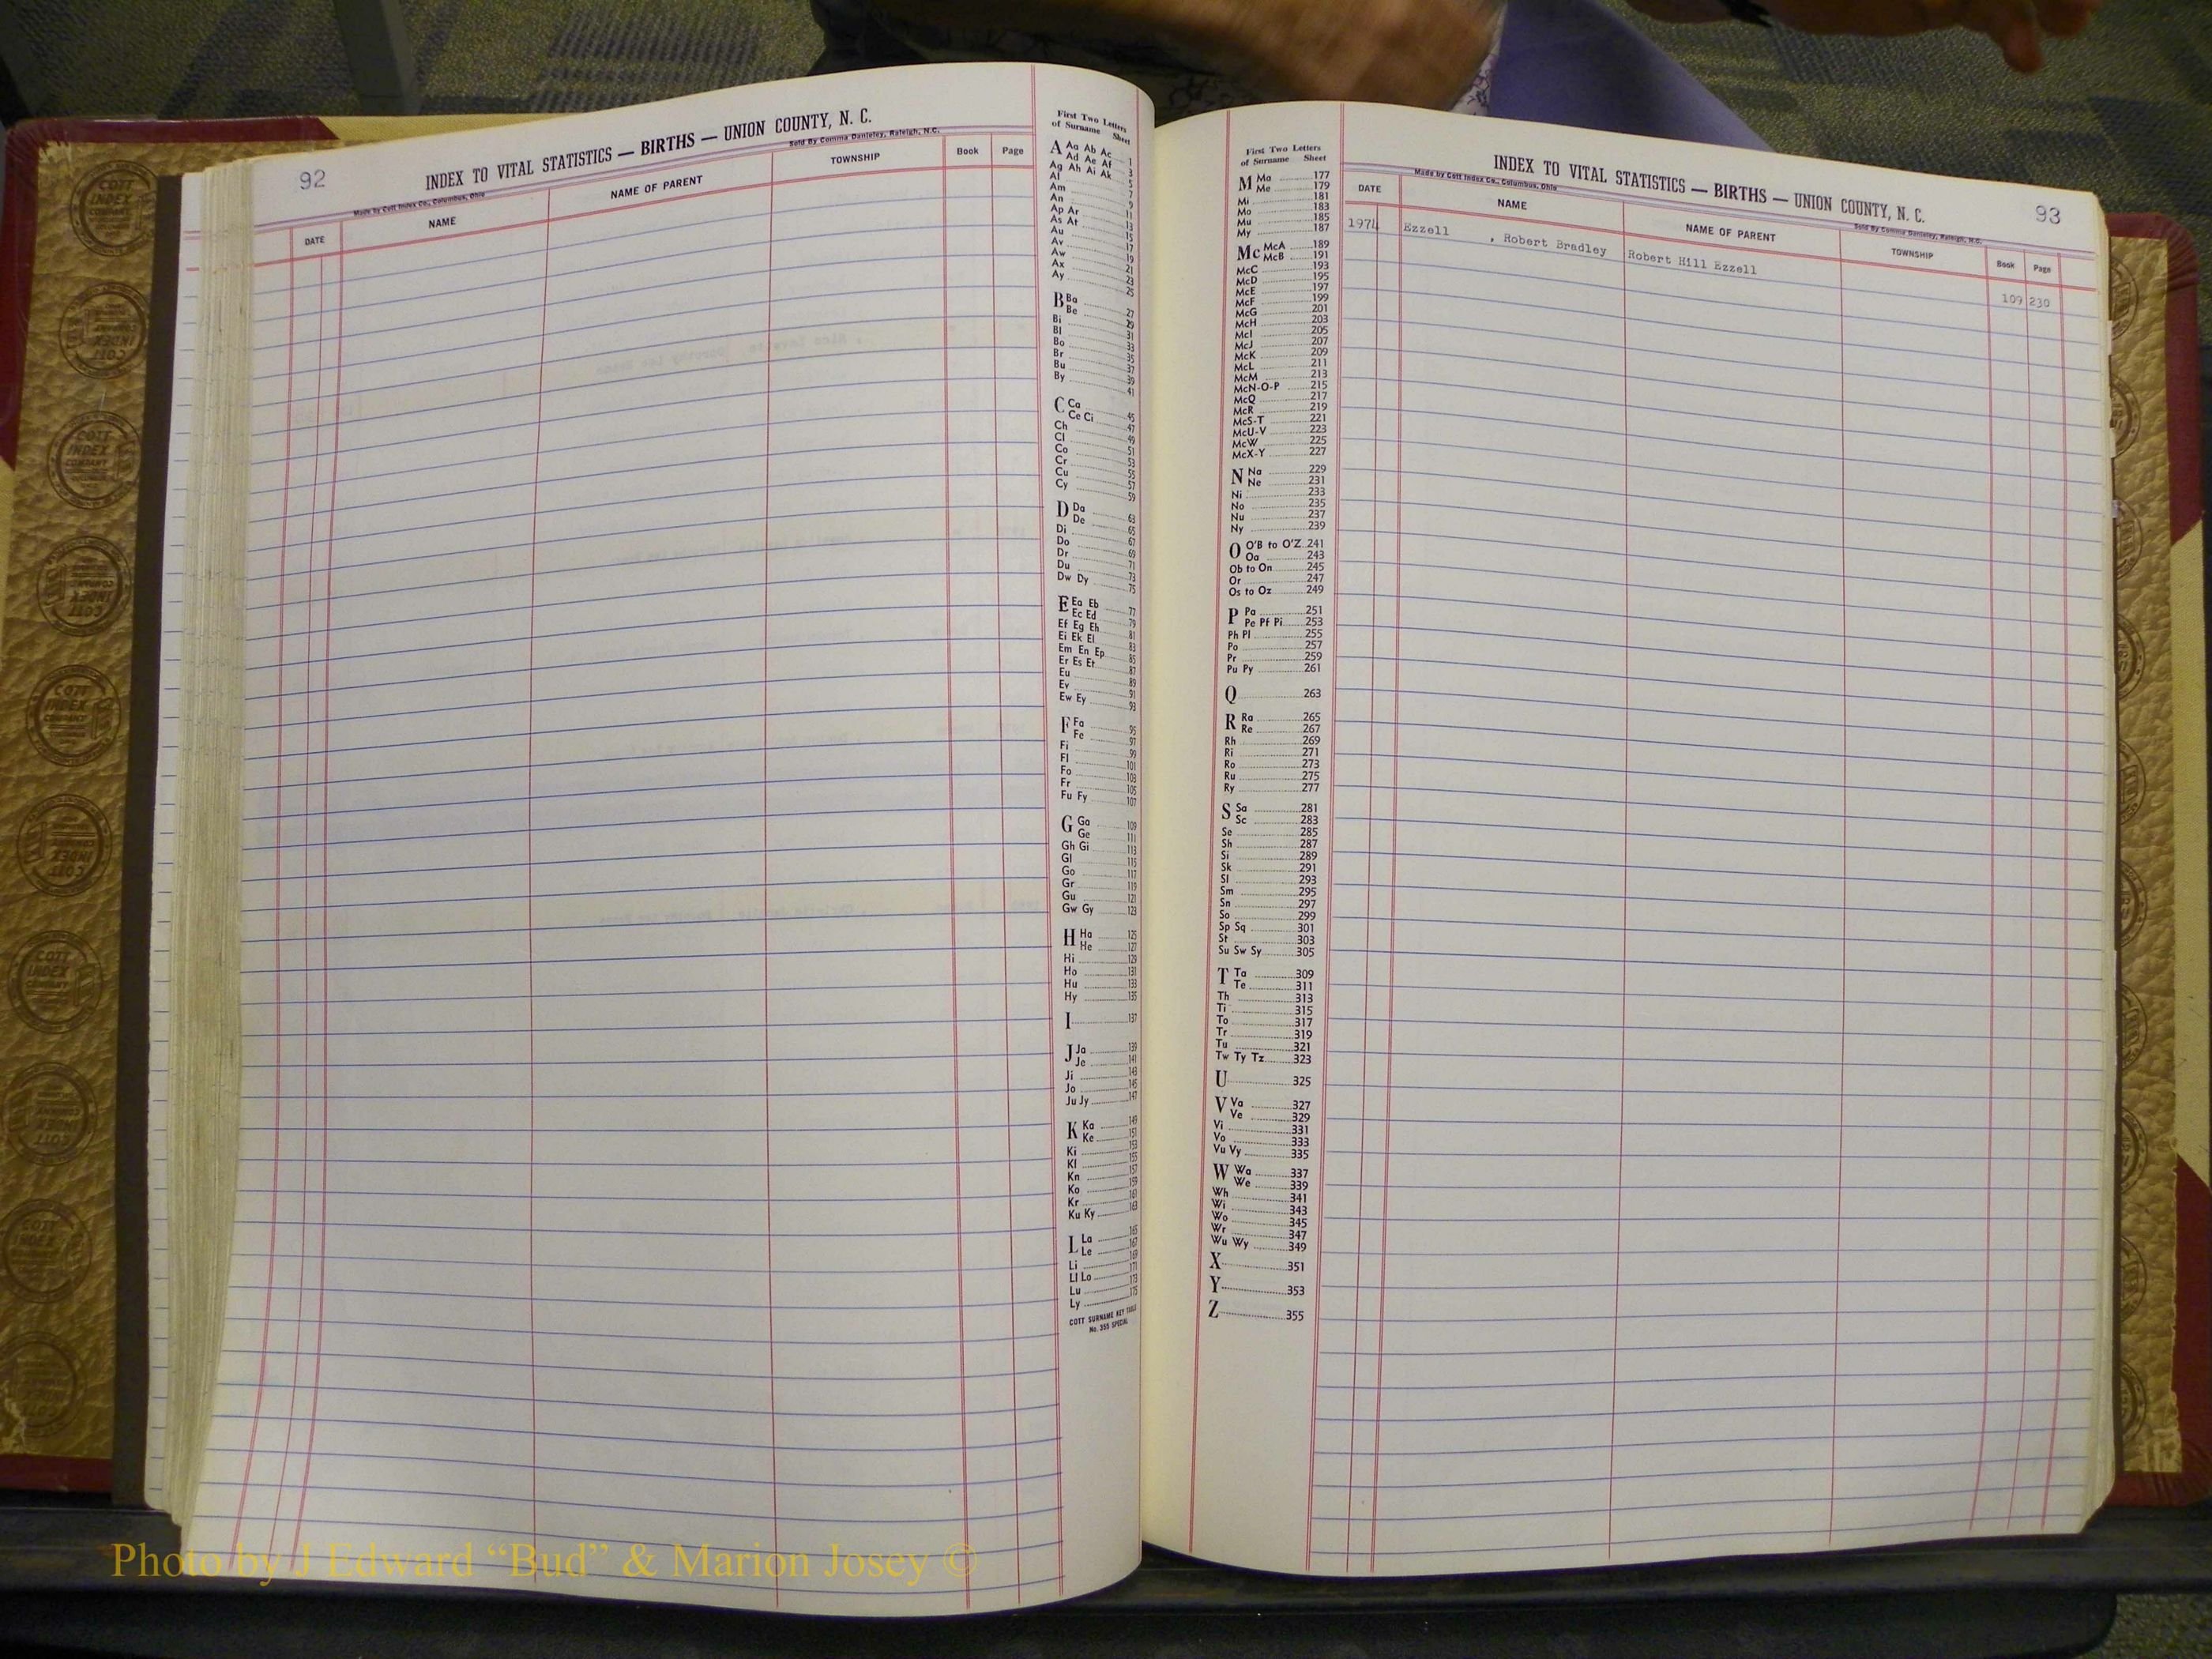 92
INDEX TO VITAL STATISTICS — BIRTHS — UNION COUNTY, N. C.
Made by Cott Index Co., Columbus, Ohio
Sold By Comma Danieley, Raleigh, N.C.
DATE NAME NAME OF PARENT TOWNSHIP Book Page
First Two Letters
of Surname Sheet
A Aa Ab Ac 1
Ad Ae Af 3
Ag Ah Ai Ak 5
Al 7
Am 9
An 11
Ap Ar 13
As At 15
Au 17
Av 19
Aw 21
Ax 23
Ay 25
B Ba 27
Be 29
Bi 31
Bl 33
Bo 35
Br 37
Bu 39
By 41
C Ca 45
Ce Ci 47
Ch 49
Cl 51
Co 53
Cr 55
Cu 57
Cy 59
D Da 63
De 65
Di 67
Do 69
Dr 71
Du 73
Dw Dy 75
E Ea Eb 77
Ec Ed 79
Ef Eg Eh 81
Ei Ek El 83
Em En Ep 85
Er Es Et 87
Eu 89
Ev 91
Ew Ey 93
F Fa 95
Fe 97
Fi 99
Fl 101
Fo 103
Fr 105
Fu Fy 107
G Ga 109
Ge 111
Gh Gi 113
Gl 115
Go 117
Gr 119
Gu 121
Gw Gy 123
H Ha 125
He 127
Hi 129
Ho 131
Hu 133
Hy 135
I 137
J Ja 139
Je 141
Ji 143
Jo 145
Ju Jy 147
K Ka 149
Ke 151
Ki 153
Kl 155
Kn 157
Ko 159
Kr 161
Ku Ky 163
L La 165
Le 167
Li 169
Ll Lo 171
Lu 173
Ly 175
COTT SURNAME KEY TABLE
No. 355 SPECIAL
First Two Letters
of Surname Sheet
M Ma 177
Me 179
Mi 181
Mo 183
Mu 185
My 187
Mc McA 189
McB 191
McC 193
McD 195
McE 197
McF 199
McG 201
McH 203
McI 205
McJ 207
McK 209
McL 211
McM 213
McN-O-P 215
McQ 217
McR 219
McS-T 221
McU-V 223
McW 225
McX-Y 227
N Na 229
Ne 231
Ni 233
No 235
Nu 237
Ny 239
O O'B to O'Z 241
Oa 243
Ob to On 245
Or 247
Os to Oz 249
P Pa 251
Pe Pf Pi 253
Ph Pl 255
Po 257
Pr 259
Pu Py 261
Q 263
R Ra 265
Re 267
Rh 269
Ri 271
Ro 273
Ru 275
Ry 277
S Sa 281
Sc 283
Se 285
Sh 287
Si 289
Sk 291
Sl 293
Sm 295
Sn 297
So 299
Sp Sq 301
St 303
Su Sw Sy 305
T Ta 309
Te 311
Th 313
Ti 315
To 317
Tr 319
Tu 321
Tw Ty Tz 323
U 325
V Va 327
Ve 329
Vi 331
Vo 333
Vu Vy 335
W Wa 337
We 339
Wh 341
Wi 343
Wo 345
Wr 347
Wu Wy 349
X 351
Y 353
Z 355
INDEX TO VITAL STATISTICS — BIRTHS — UNION COUNTY, N. C.
93
Made by Cott Index Co., Columbus, Ohio
Sold By Comma Danieley, Raleigh, N.C.
DATE NAME NAME OF PARENT TOWNSHIP Book Page
1974 Ezzell , Robert Bradley Robert Hill Ezzell 109 230
COTT INDEX COMPANY
Photo by J Edward “Bud” & Marion Josey ©